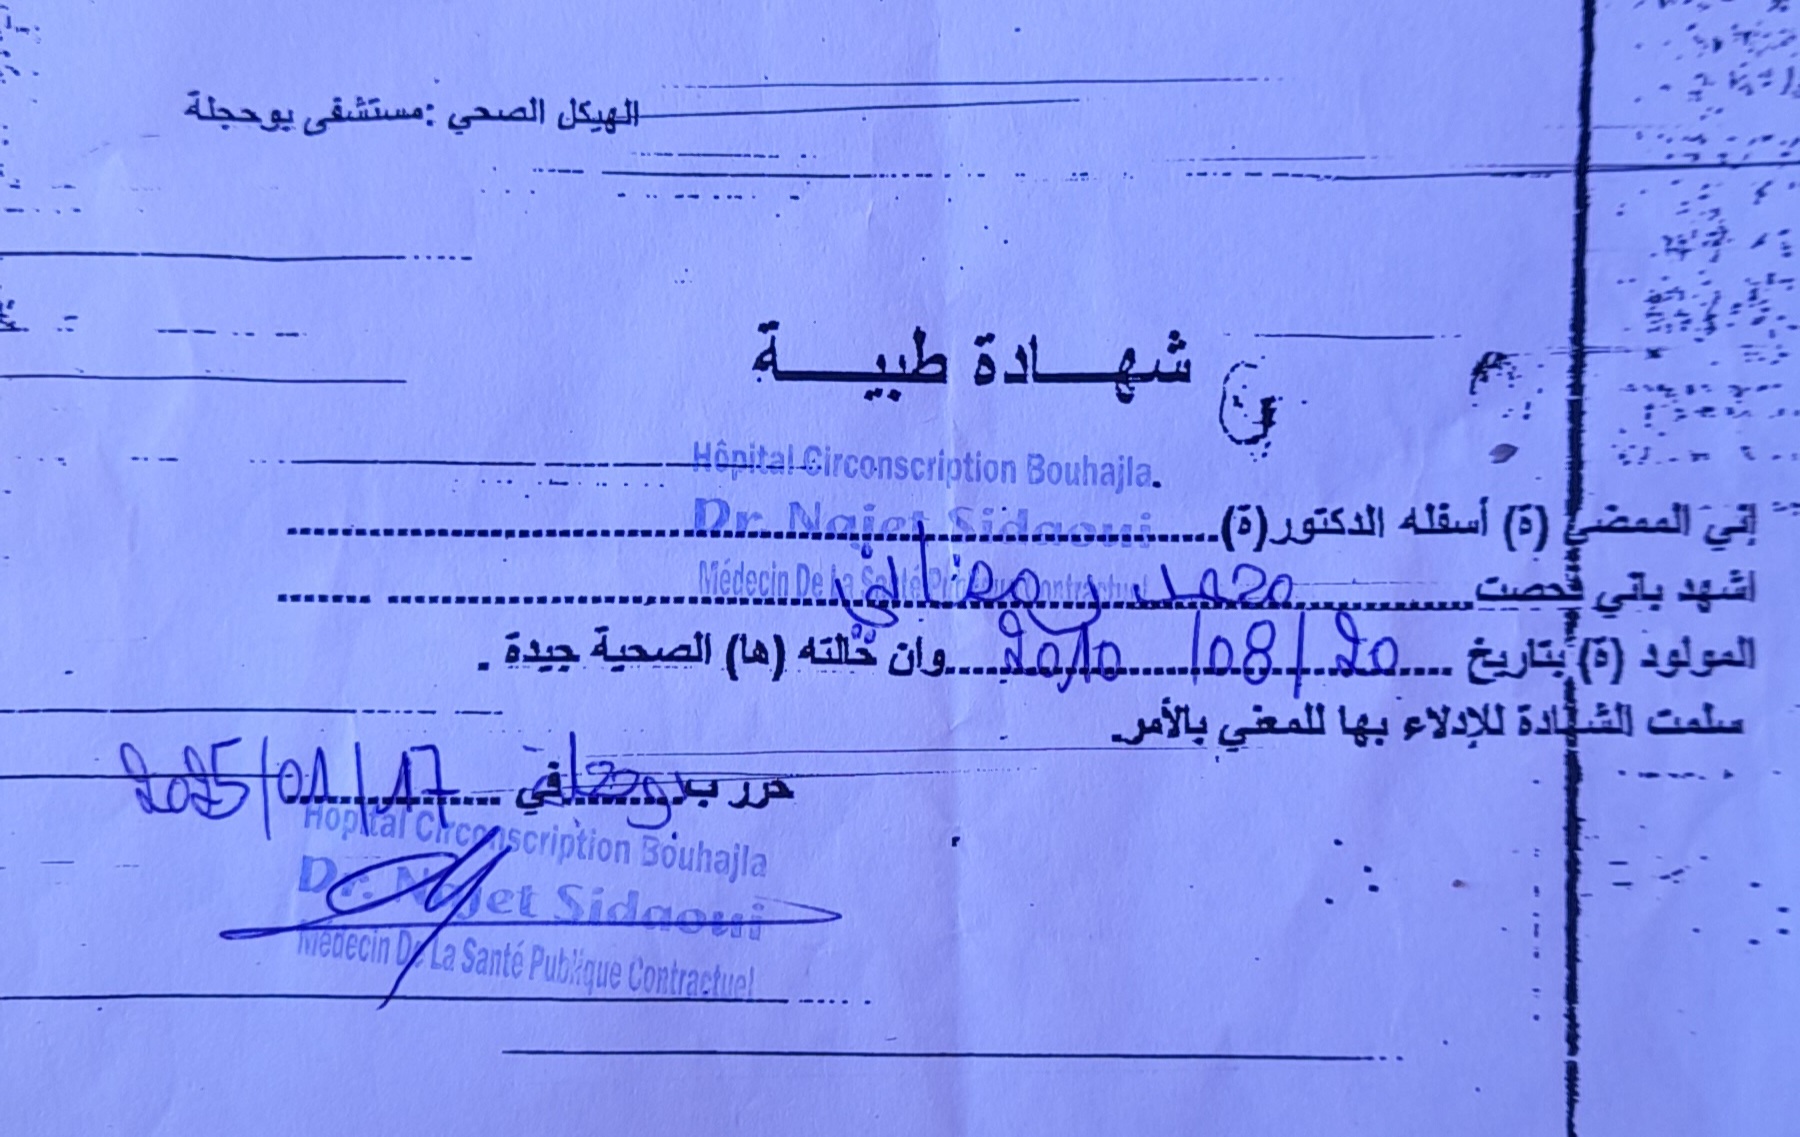 الهيكل الصحي :مستشفى بوحجلة
شهـــادة طبيـــة
Hôpital Circonscription Bouhajla.
Dr. Najet Sidaoui
Médecin De La Santé Publique Contractuel
إني الممضي (ة) أسفله الدكتور(ة)
أشهد بأني فحصت محمد رمضاني
المولود (ة) بتاريخ 20/08/2010 وان حالته (ها) الصحية جيدة .
سلمت الشهادة للإدلاء بها للمعني بالأمر.
حرر ب بوحجلة في 17/01/2025
Hôpital Circonscription Bouhajla
Dr. Najet Sidaoui
Médecin De La Santé Publique Contractuel